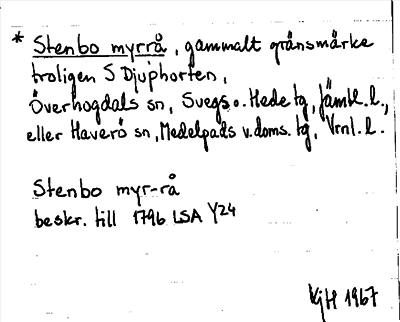 * Stenbo myrrå, gammalt gränsmärke
troligen S Djuphorten,
Överhogdals sn, Svegs o. Hede tg, Jämtl. l.,
eller Haverö sn, Medelpads v. doms. tg, Vrnl. l.
Stenbo myr-rå
beskr. till 1796 LSA Y24
KjH 1967